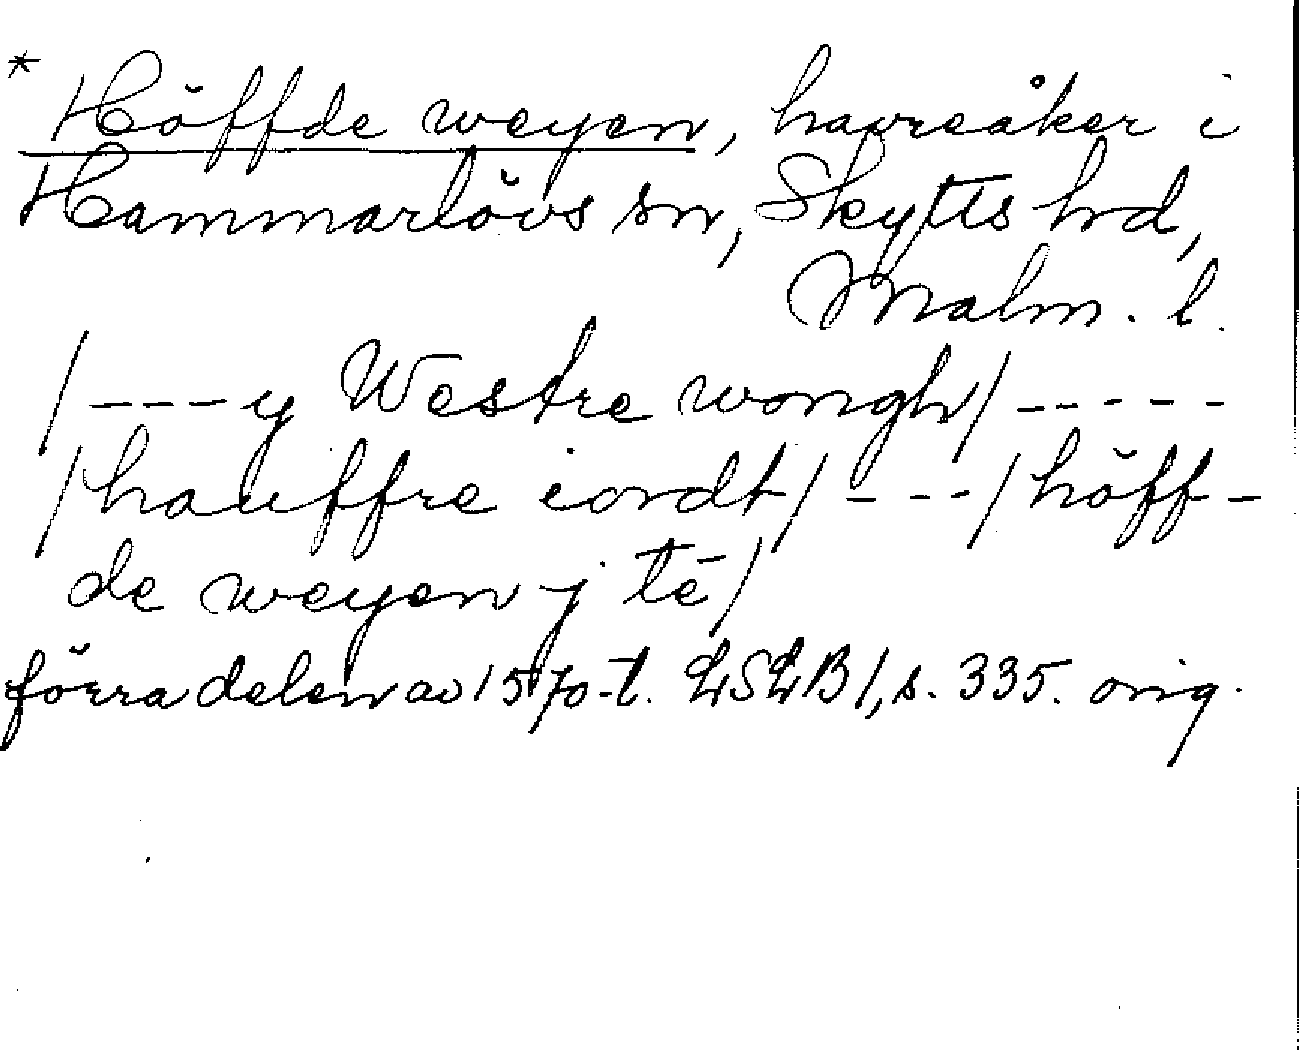 * Höffde weyen, havreåker i
Hammarlövs sn, Skytts hd,
Malm. l.
/---y Westre wongh/-----
/hauffre iordt/---/höff-
de weyen j té/
förra delen av 1570-t. LSLB1, s. 335. orig.